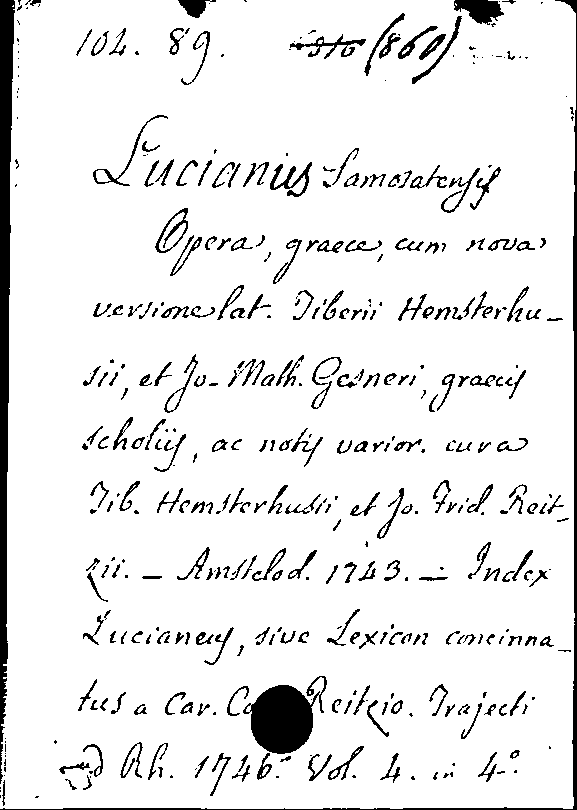 104. 89. (860)
Lucianus Samosatensis
Opera, graece, cum nova
versione lat. Tiberii Hemsterhu-
sii, et Jo. Math. Gesneri, graecis
scholiis, ac notis varior. cura
Tib. Hemsterhusii, et Jo. Frid. Reit-
zii. – Amstelod. 1743. – Index
Lucianeus, sive Lexicon concinna-
tus a Car. Co Reitzio. Trajecti
ad Rh. 1746. Vol. 4. in 4°.